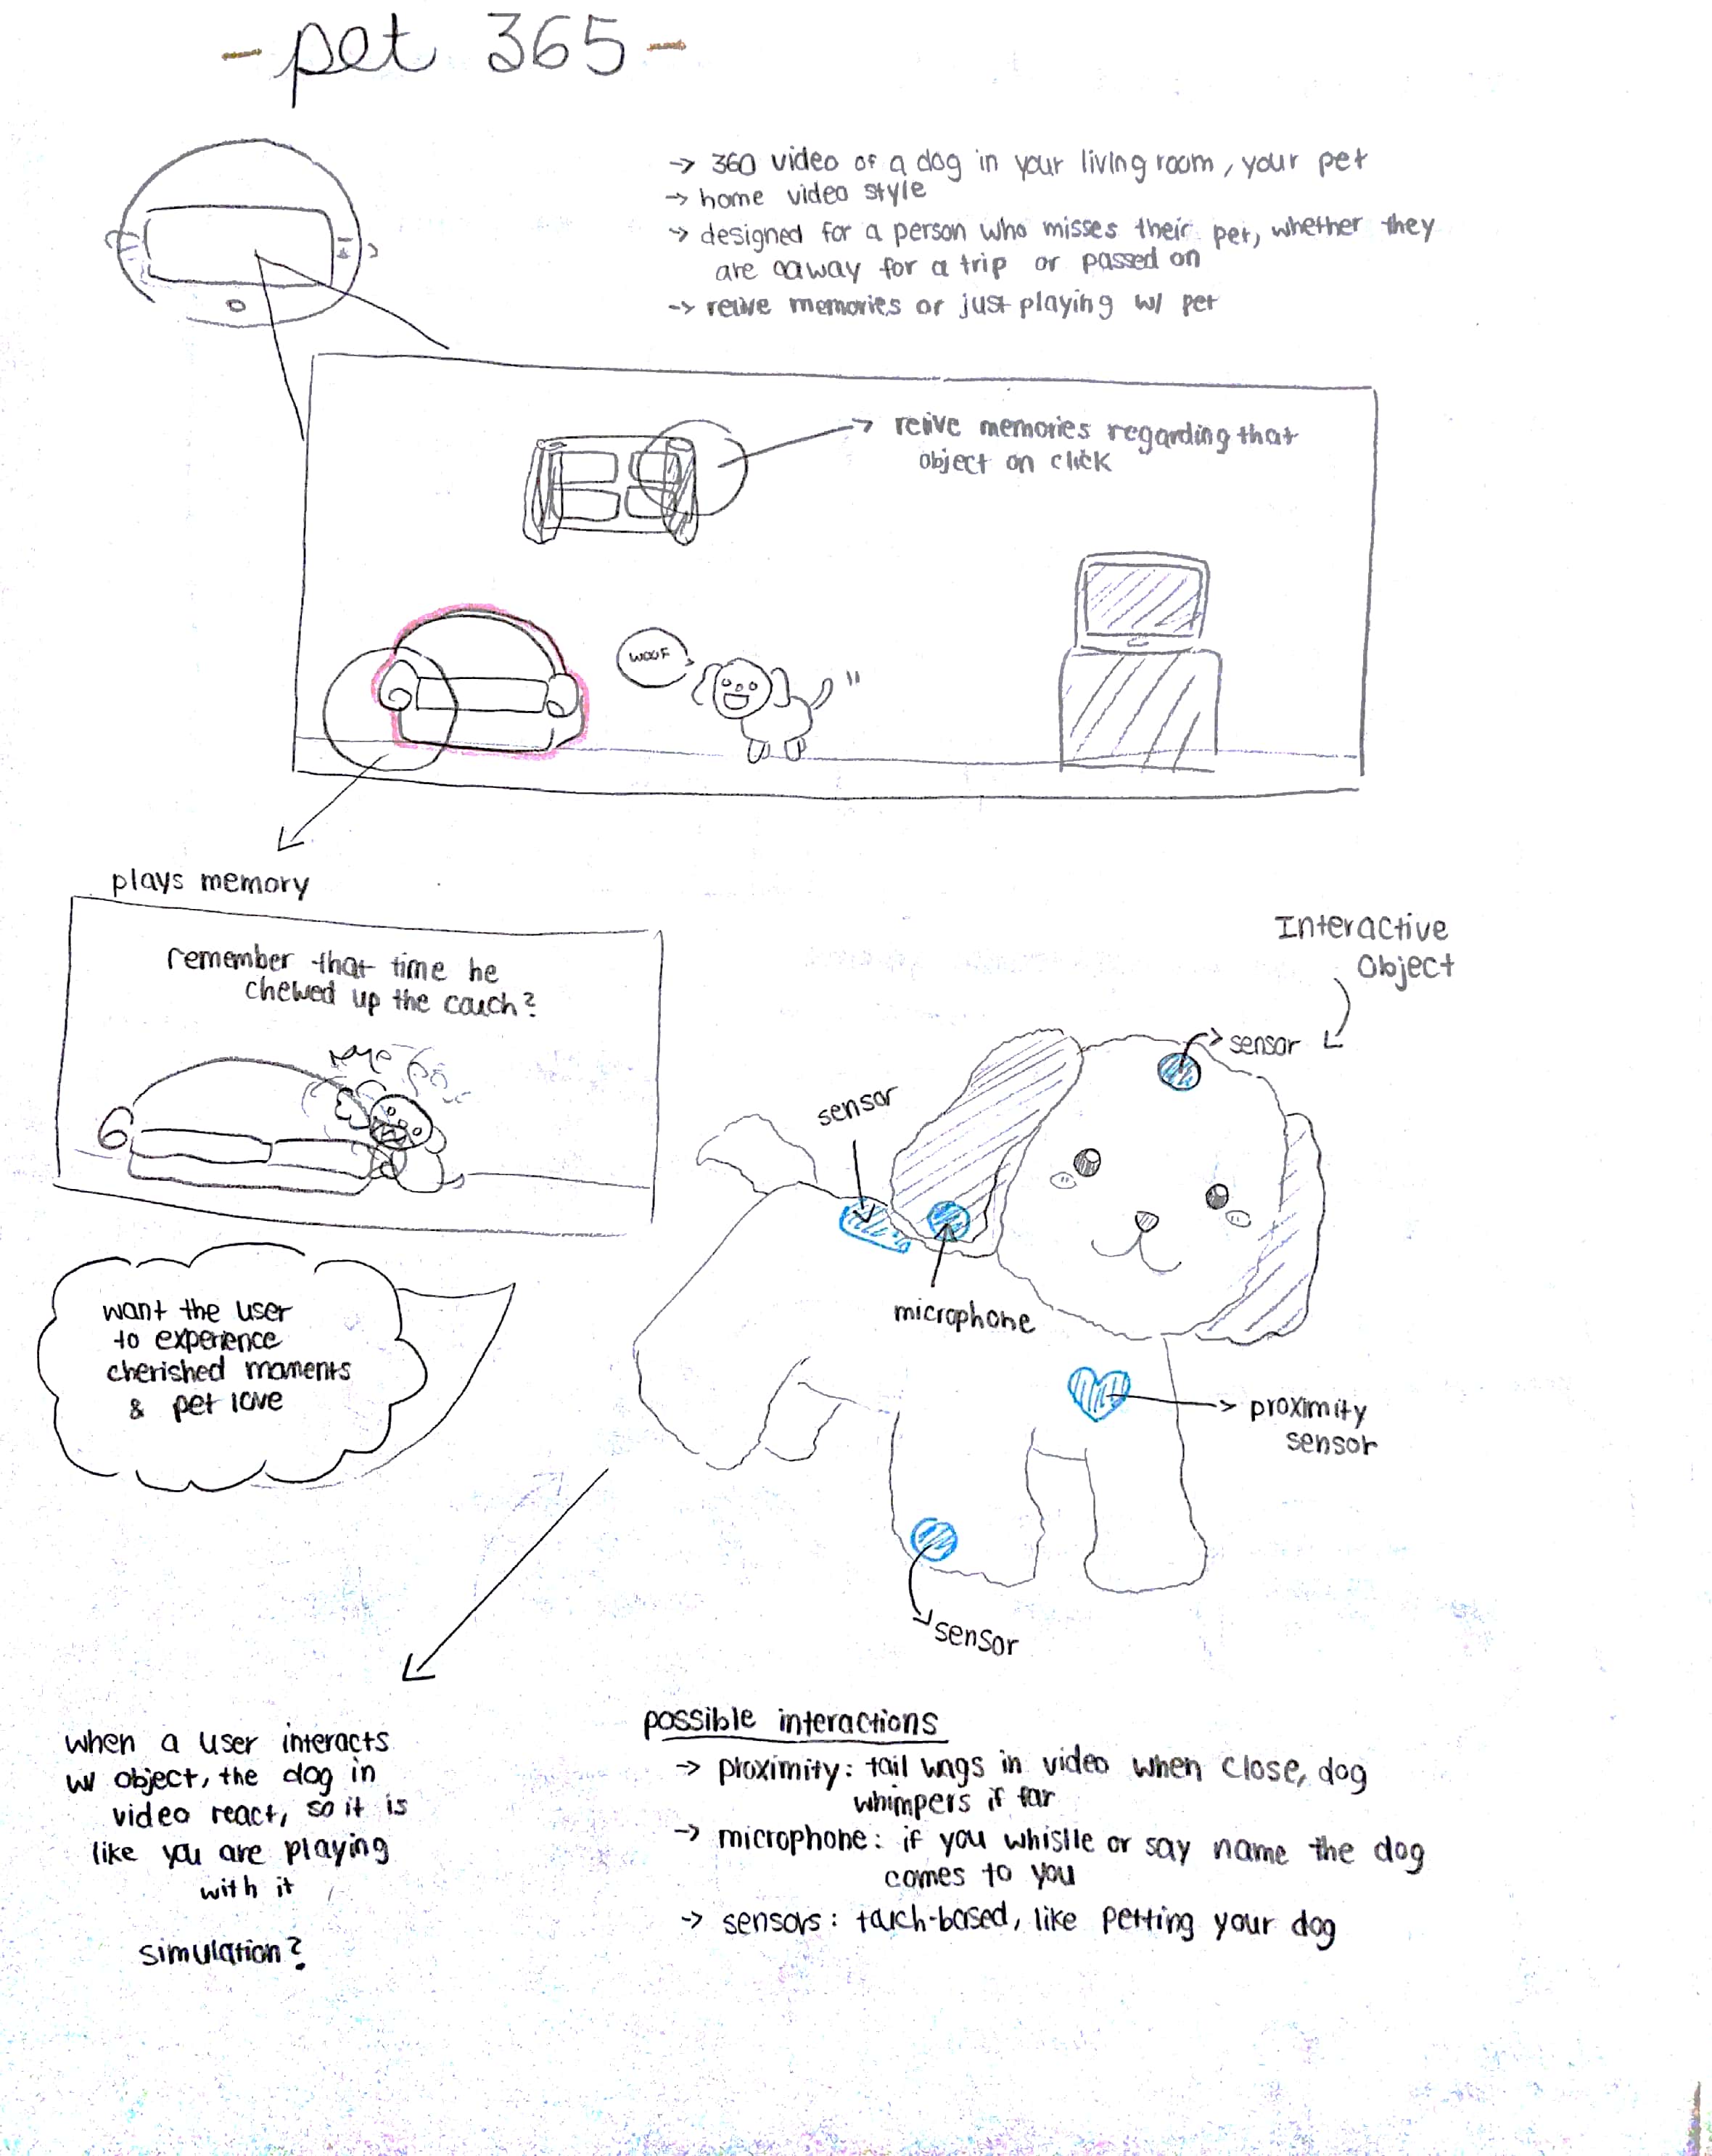 - pet 365 -
→ 360 video of a dog in your living room, your pet
→ home video style
→ designed for a person who misses their pet, whether they
are away for a trip or passed on
→ relive memories or just playing w/ pet
→ relive memories regarding that
object on click
WOOF
plays memory
remember that time he
chewed up the couch?
Interactive
Object
sensor
sensor
microphone
want the user
to experience
cherished moments
& pet love
proximity
sensor
sensor
when a user interacts
w/ object, the dog in
video react, so it is
like you are playing
with it
simulation?
possible interactions
→ proximity: tail wags in video when close, dog
whimpers if far
→ microphone: if you whistle or say name the dog
comes to you
→ sensors: touch-based, like petting your dog